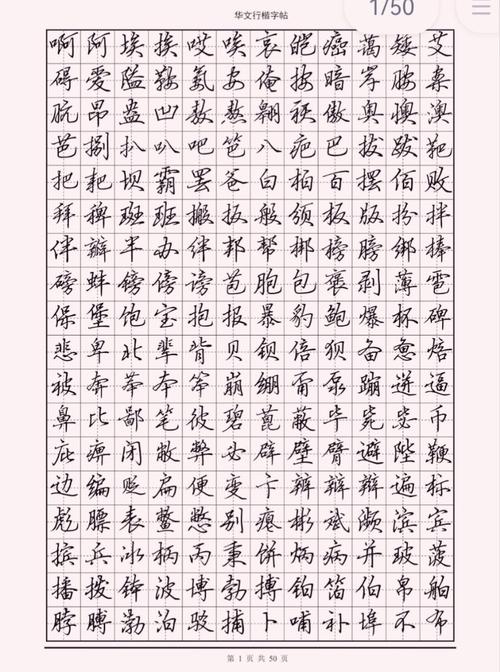 1/50
华文行楷字帖
啊阿埃挨哎唉哀皑癌蔼矮艾
碍爱隘鞍氨安俺按暗岸胺案
肮昂盎凹敖熬翱袄傲奥懊澳
芭捌扒叭吧笆八疤巴拔跋靶
把耙坝霸罢爸白柏百摆佰败
拜稗斑班搬扳般颁板版扮拌
伴瓣半办绊邦帮梆榜膀绑棒
磅蚌镑傍谤苞胞包褒剥薄雹
保堡饱宝抱报暴豹鲍爆杯碑
悲卑北辈背贝钡倍狈备惫焙
被奔苯本笨崩绷甭泵蹦迸逼
鼻比鄙笔彼碧蓖蔽毕毙毖币
庇痹闭敝弊必辟壁臂避陛鞭
边编贬扁便变卞辨辩辫遍标
彪膘表鳖憋别瘪彬斌濒滨宾
摈兵冰柄丙秉饼炳病并玻菠
播拨钵波博勃搏铂箔伯帛舶
脖膊渤泊驳捕卜哺补埠不布
第 1 页 共 50 页